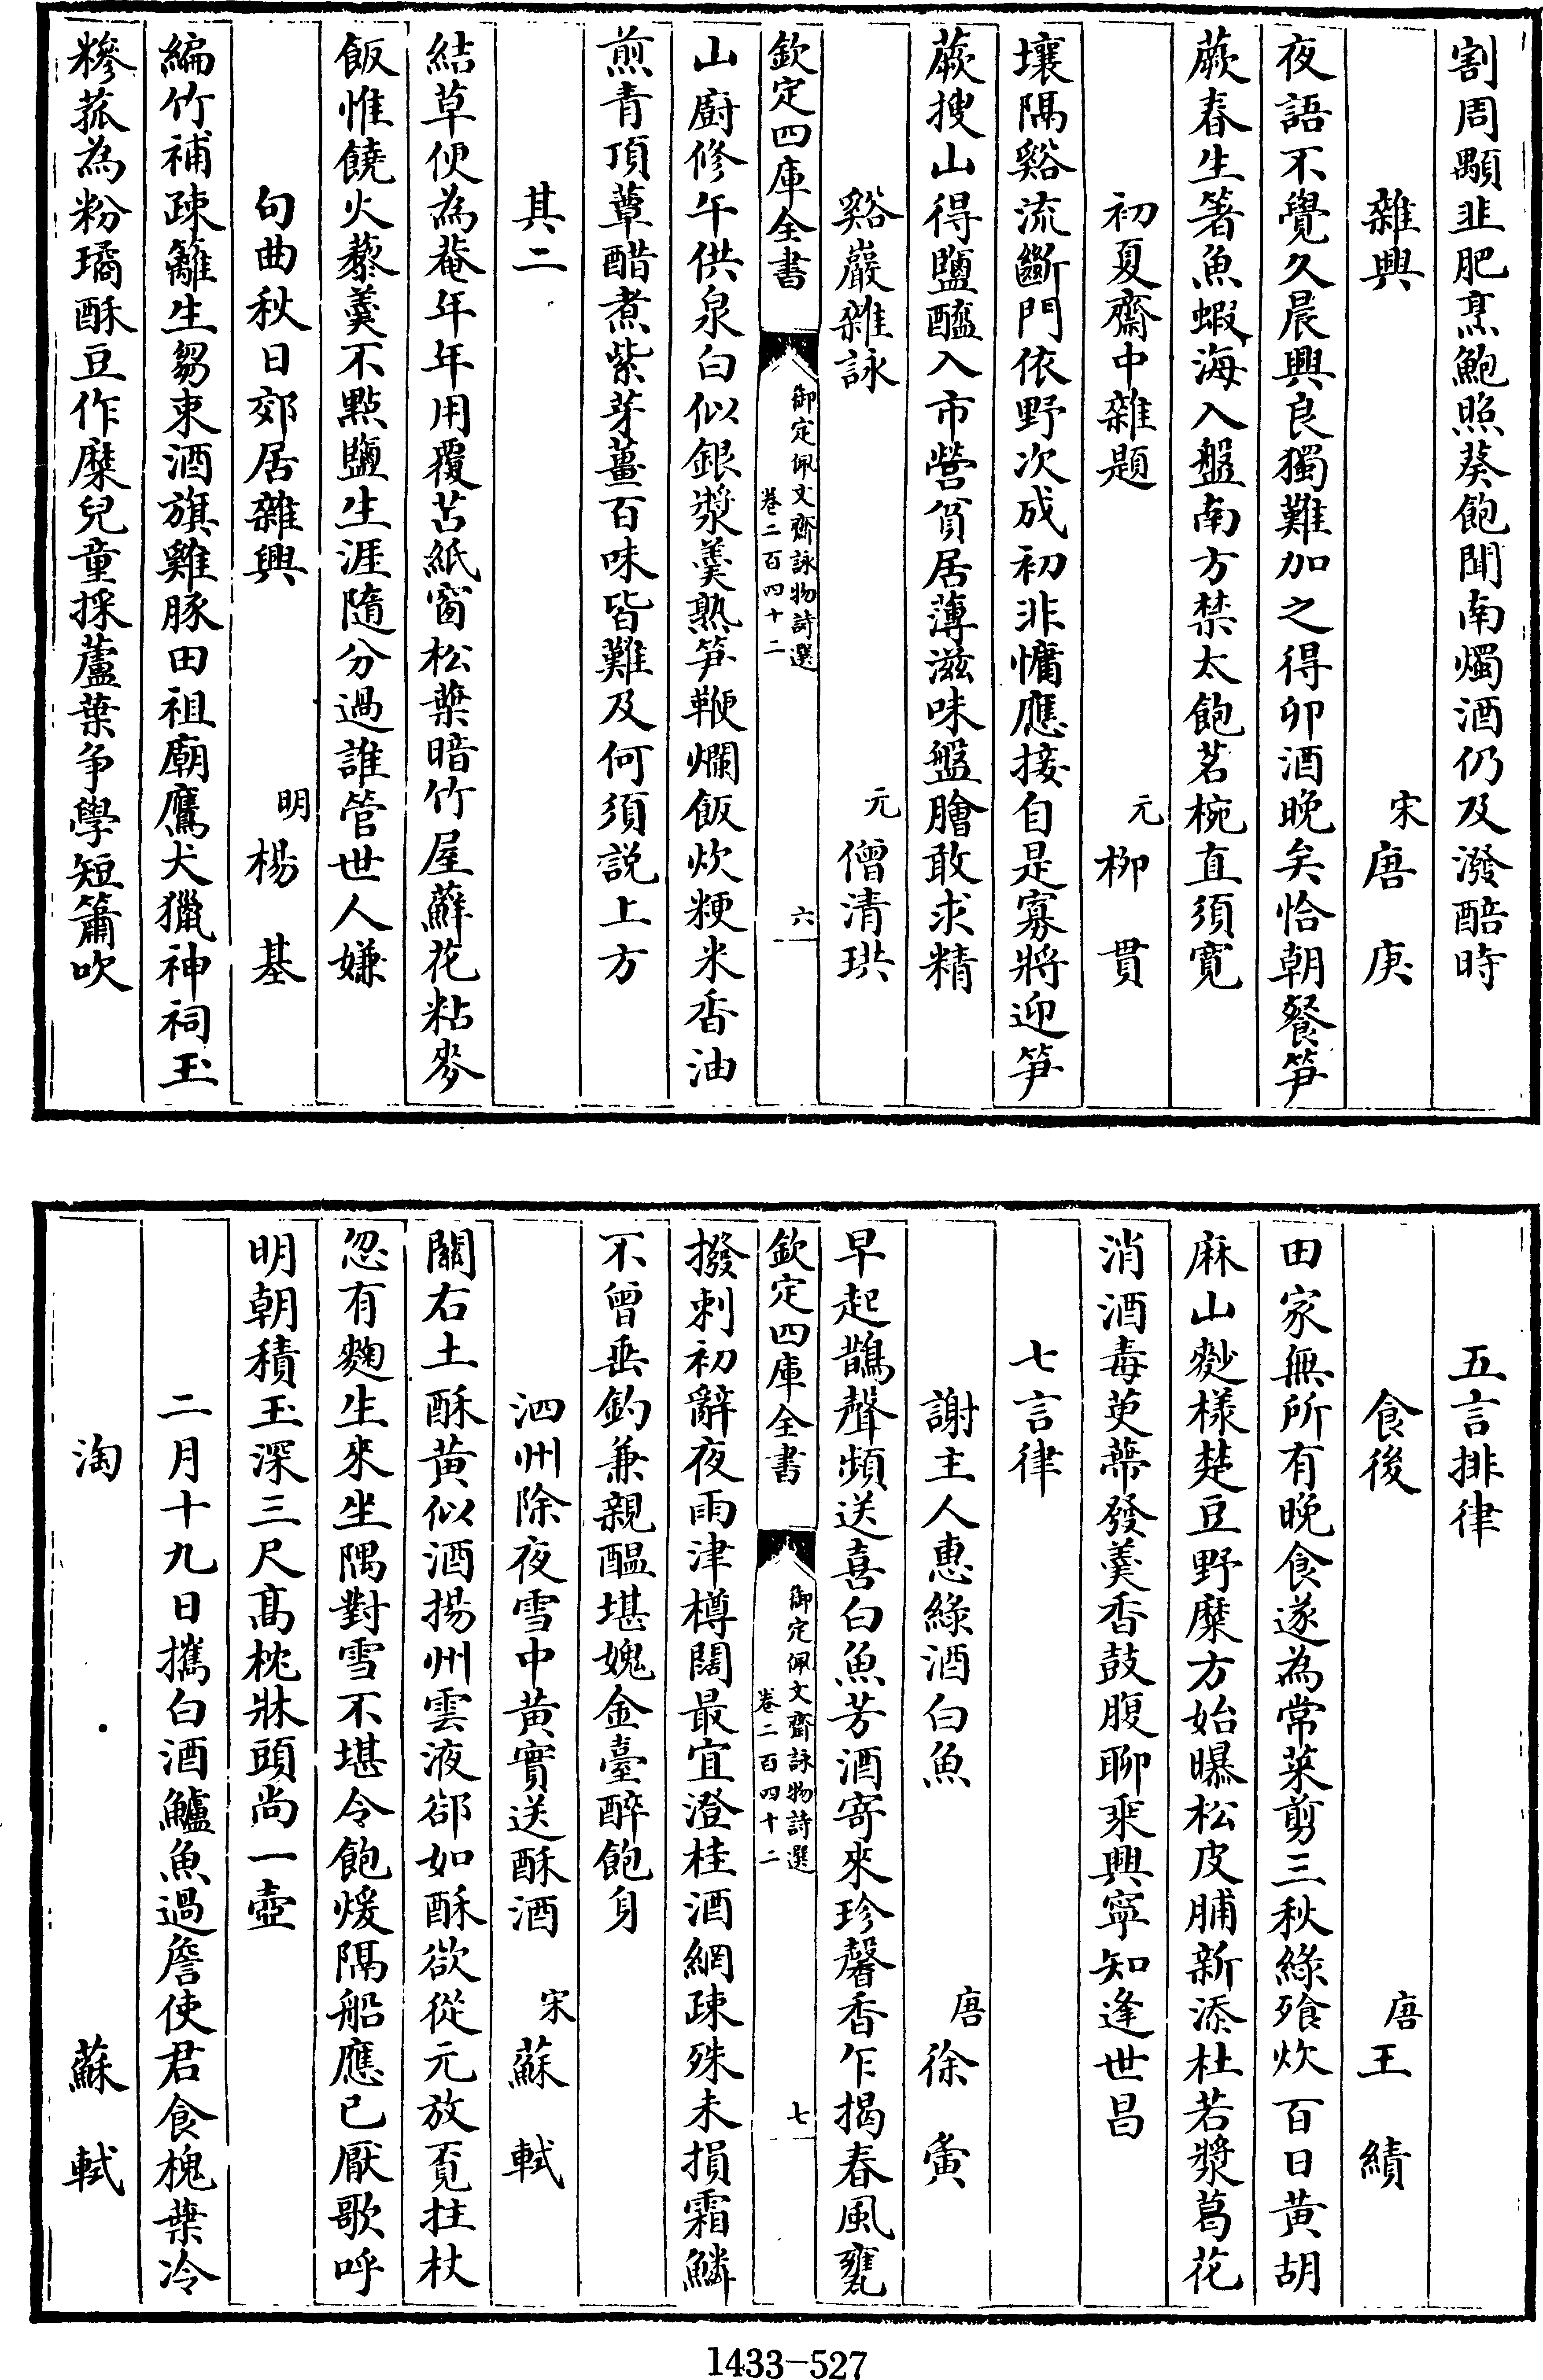 割周顒韭肥烹鮑照葵飽聞南燭酒仍及潑醅時
雜興　宋唐庚
夜語不覺久晨興良獨難加之得卯酒晚矣恰朝餐笋
蕨春生箸魚蝦海入盤南方禁太飽茗椀直須寬
初夏齋中雜題　元柳貫
壤隔谿流斷門依野次成初非慵應接自是寡將迎笋
蕨搜山得鹽醯入市營貧居薄滋味盤膾敢求精
谿巖雜詠　元僧清珙
欽定四庫全書　御定佩文齋詠物詩選　卷二百四十二　六
山廚修午供泉白似銀漿羮熟笋鞭爛飯炊粳米香油
煎青頂蕈醋煮紫芽薑百味皆難及何須説上方
其二
結草便為菴年年用覆苫紙窗松葉暗竹屋蘚花粘麥
飯惟饒火藜羮不點鹽生涯隨分過誰管世人嫌
句曲秋日郊居雜興　明楊基
編竹補疎籬生芻束酒旗雞豚田祖廟鷹犬獵神祠玉
糝菰為粉璚酥豆作糜兒童採蘆葉争學短簫吹
五言排律
食後　唐王績
田家無所有晚食遂為常菜剪三秋綠飱炊百日黄胡
麻山麨樣楚豆野糜方始曝松皮脯新添杜若漿葛花
消酒毒萸蔕發羮香鼓腹聊乘興寧知逢世昌
七言律
謝主人惠綠酒白魚　唐徐夤
早起鵲聲頻送喜白魚芳酒寄來珍馨香乍揭春風甕
欽定四庫全書　御定佩文齋詠物詩選　卷二百四十二　七
撥剌初辭夜雨津樽闊最宜澄桂酒網疎殊未損霜鱗
不曾垂釣兼親醖堪媿金臺醉飽身
泗州除夜雪中黄實送酥酒　宋蘇軾
關右土酥黄似酒揚州雲液卻如酥欲從元放覓拄杖
忽有麴生來坐隅對雪不堪令飽煖隔船應已厭歌呼
明朝積玉深三尺髙枕牀頭尚一壺
二月十九日攜白酒鱸魚過詹使君食槐葉冷
淘　蘇軾
1433—527